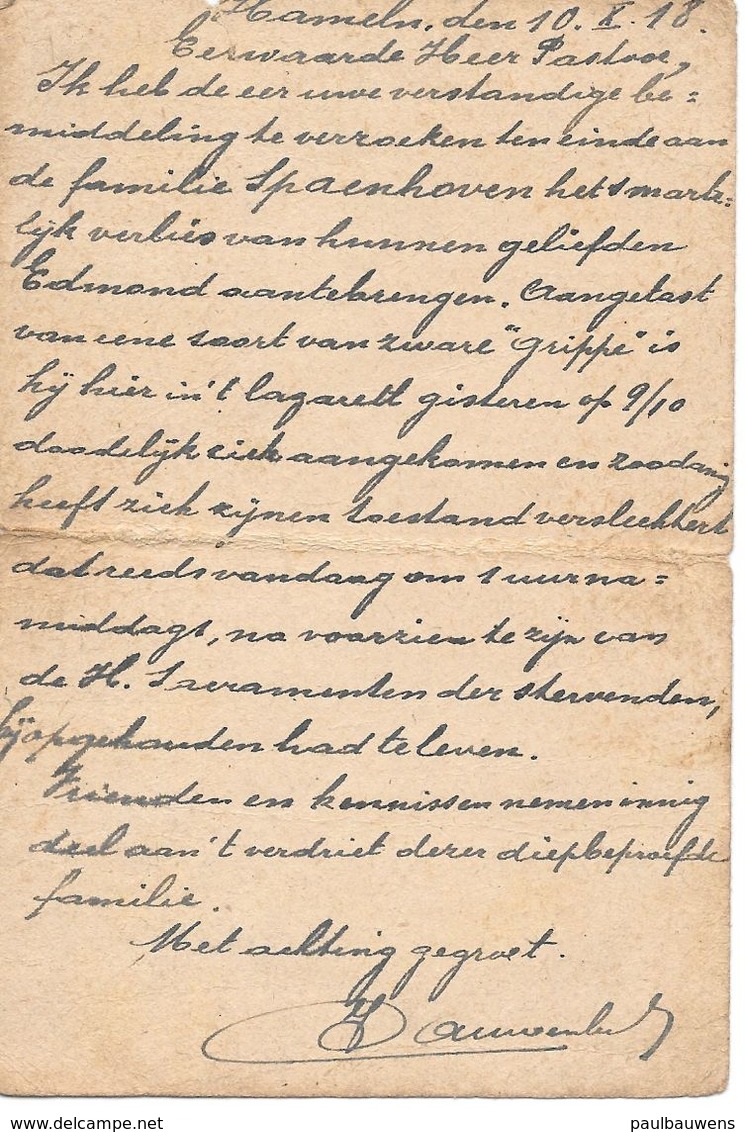 Hameln, den 10. X. 18.
Eerwaarde Heer Pastoor,
Ik heb de eer uwe verstandige be=
middeling te verzoeken ten einde aan
de familie Spaenhoven het smarte=
lijk verlies van hunnen geliefden
Edmond aantebrengen. Aangetast
van eene soort van zware "grippe" is
hij hier in 't lazarett gisteren op 9/10
doodelijk ziek aangekomen en zoodanig
heeft zich zijnen toestand verslechtert
dat reeds vandaag om 1 uur na=
middags, na voorzien te zijn van
de H. Sacramenten der stervenden,
hij opgehouden had te leven.
Vrienden en kennissen nemen innig
deel aan 't verdriet dezer diepbeproefde
familie.
Met achting gegroet.
delcampe.net
paulbauwens